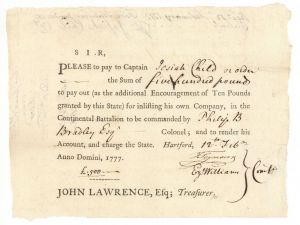 S I R,
PLEASE to pay to Captain Josiah Child or order
the Sum of five hundred pounds
to pay out (as the additional Encouragement of Ten Pounds
granted by this State) for inlisting his own Company, in the
Continental Battalion to be commanded by Philip B
Bradley Esqr Colonel; and to render his
Account, and charge the State. Hartford, 12th Feb
Anno Domini, 1777.
£500
Williams } Comtee
JOHN LAWRENCE, Esq; Treasurer.